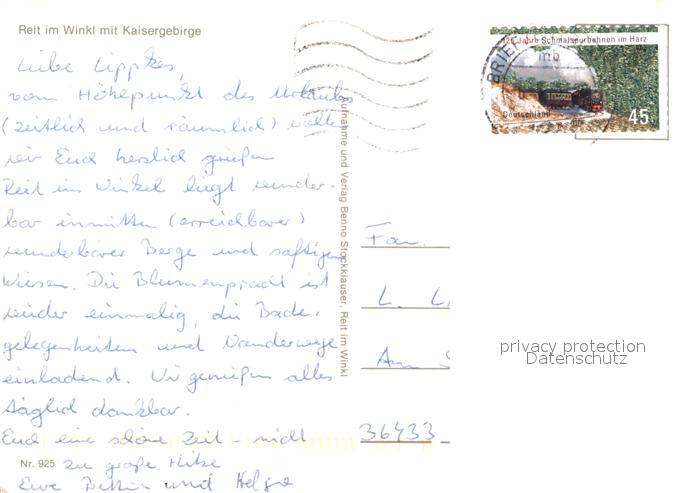 Reit im Winkl mit Kaisergebirge
Liebe Lippkes,
vom Höhepunkt des Urlaubs
(zeitlich und räumlich) wollen
wir Euch herzlich grüßen
Reit im Winkel liegt wunder-
bar inmitten (erreichbarer)
wunderbarer Berge und saftigen
Wiesen. Die Blumenpracht ist
wieder einmalig, die Bade-
gelegenheiten und Wanderwege
einladend. Wir genießen alles
täglich dankbar.
Euch eine schöne Zeit - nicht
zu große Hitze
Eure Bettina und Helge
Nr. 925
Aufnahme und Verlag Benno Stockklauser, Reit im Winkl
125 Jahre Schmalspurbahnen im Harz
Deutschland
45
BRIEF
Fam.
L. L
Am S
36433
privacy protection
Datenschutz